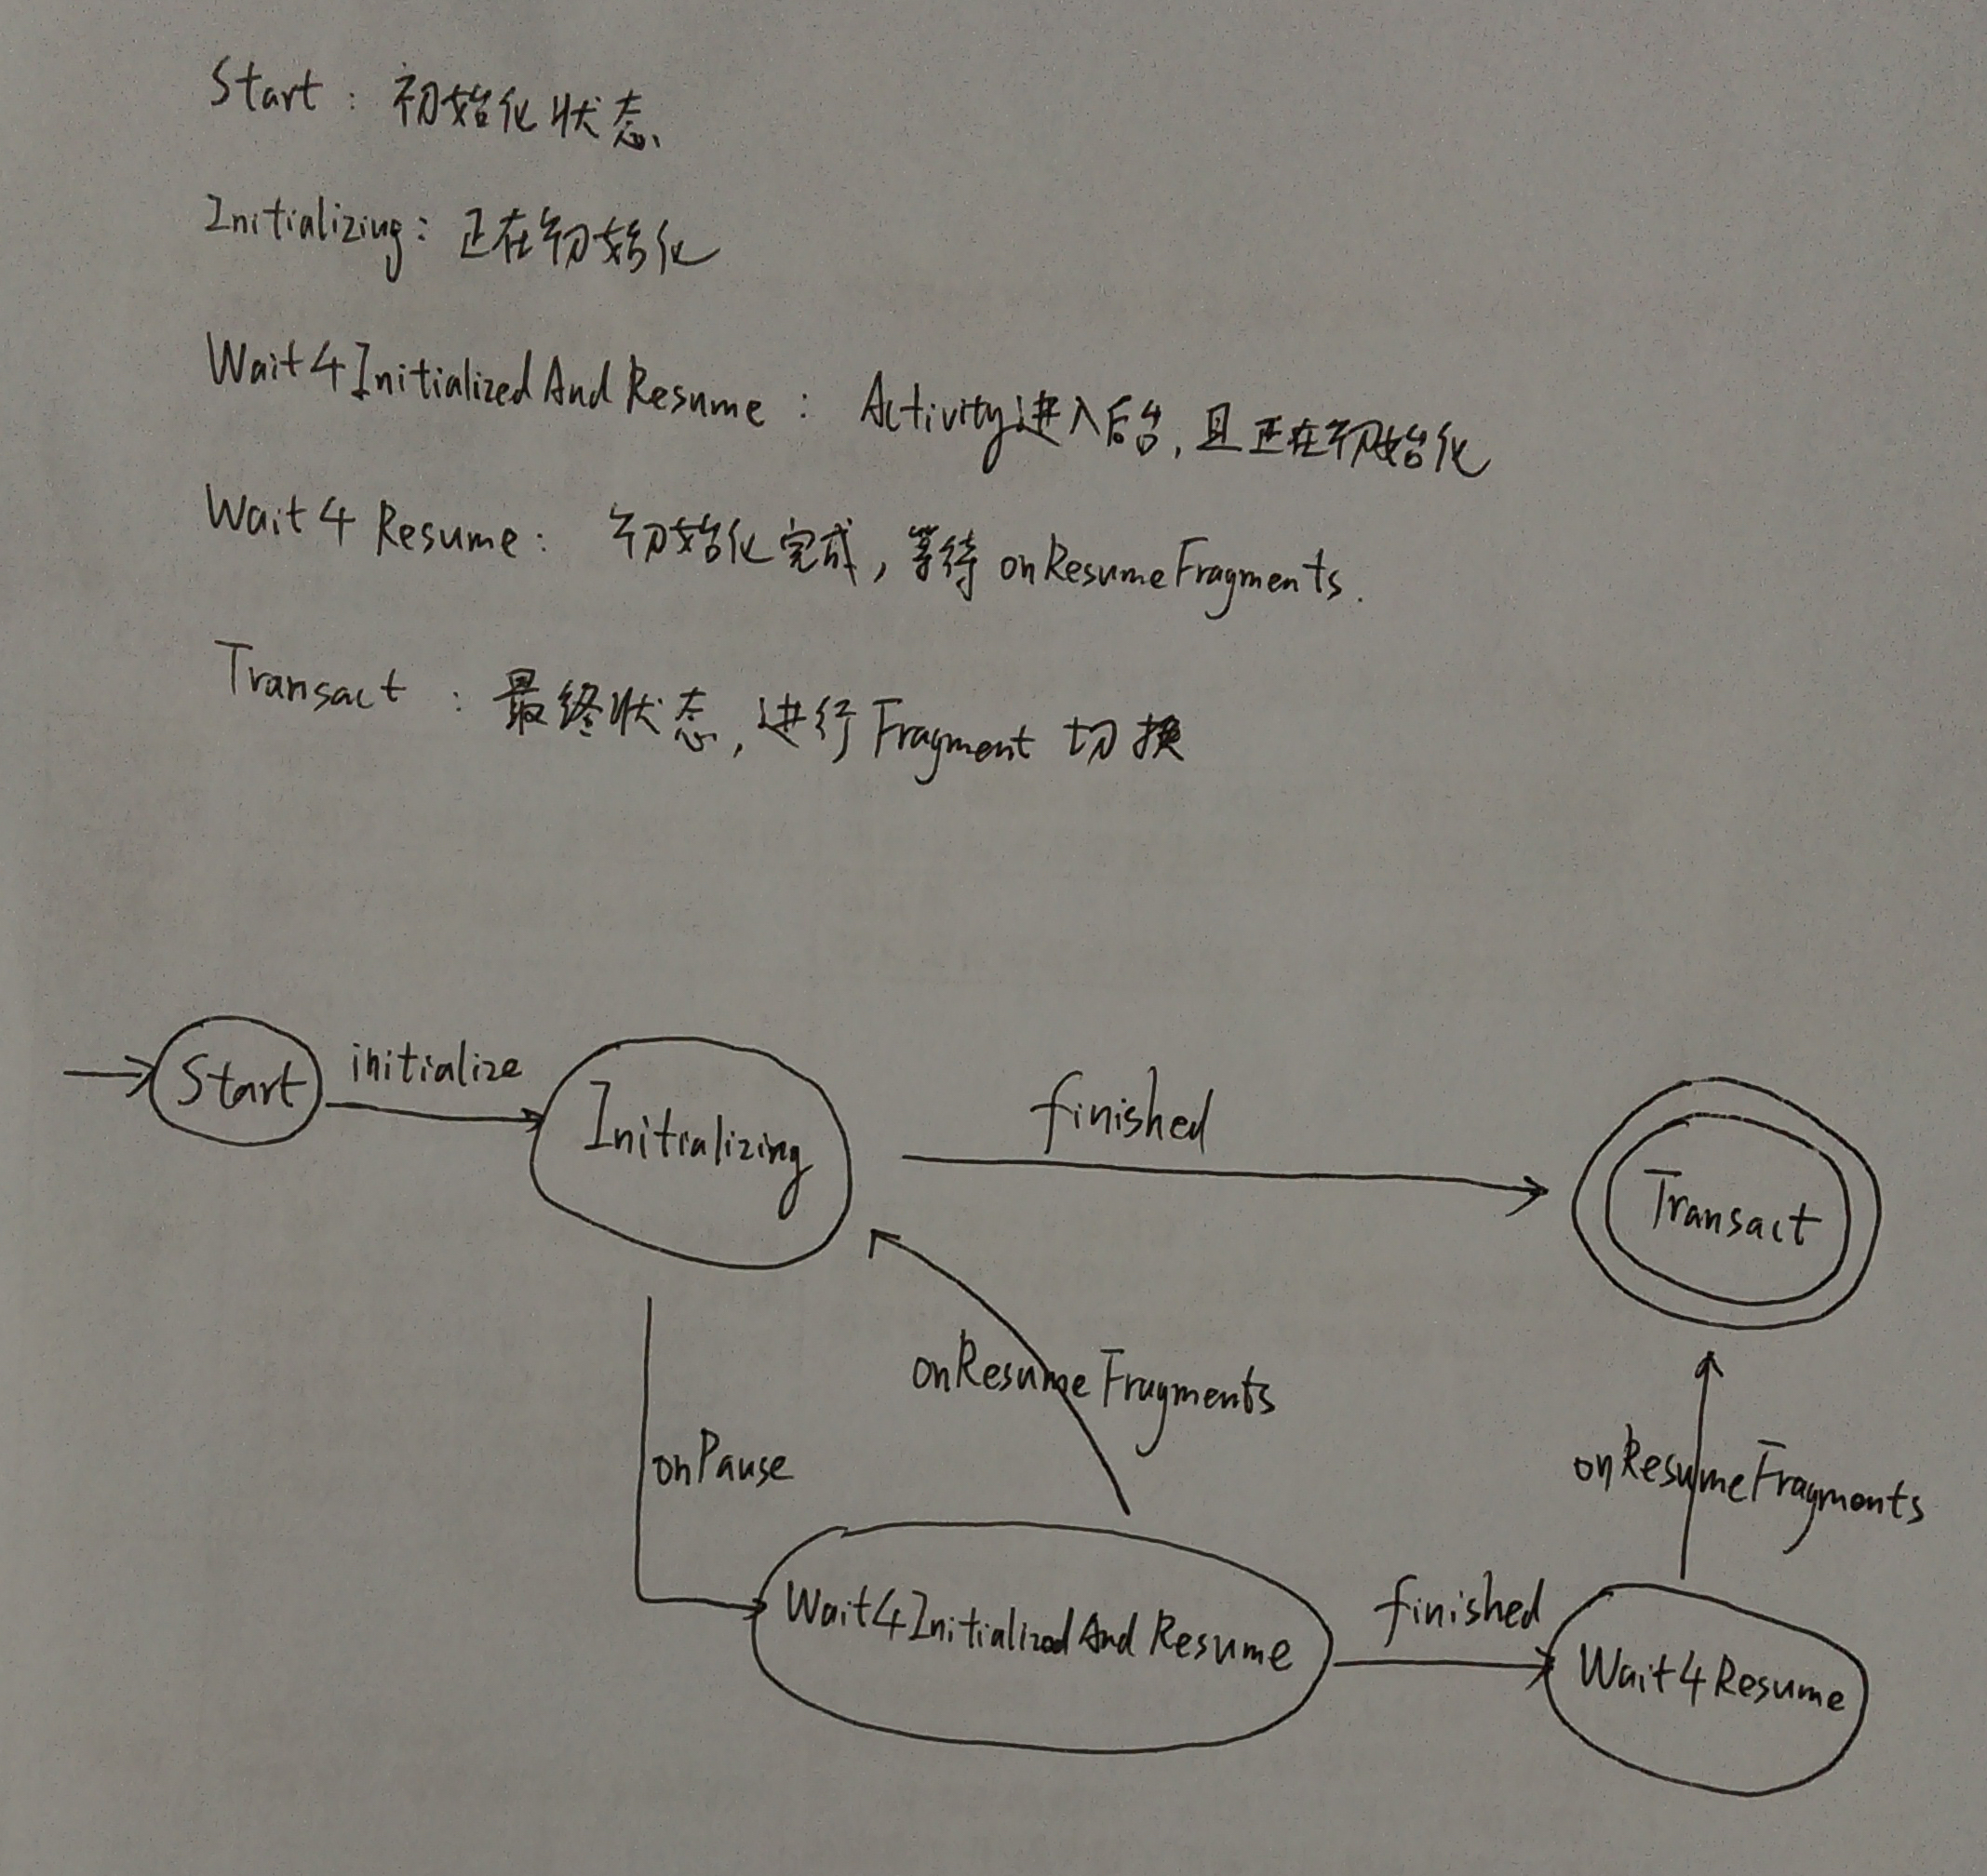 Start : 初始化状态
Initializing: 正在初始化
Wait4InitializedAndResume : Activity进入后台,且正在初始化
Wait4 Resume: 初始化完成,等待 onResumeFragments.
Transact : 最终状态,进行Fragment 切换
Start
initialize
Initializing
finished
Transact
onResumeFragments
onPause
onResumeFragments
Wait4InitializedAndResume
finished
Wait4Resume